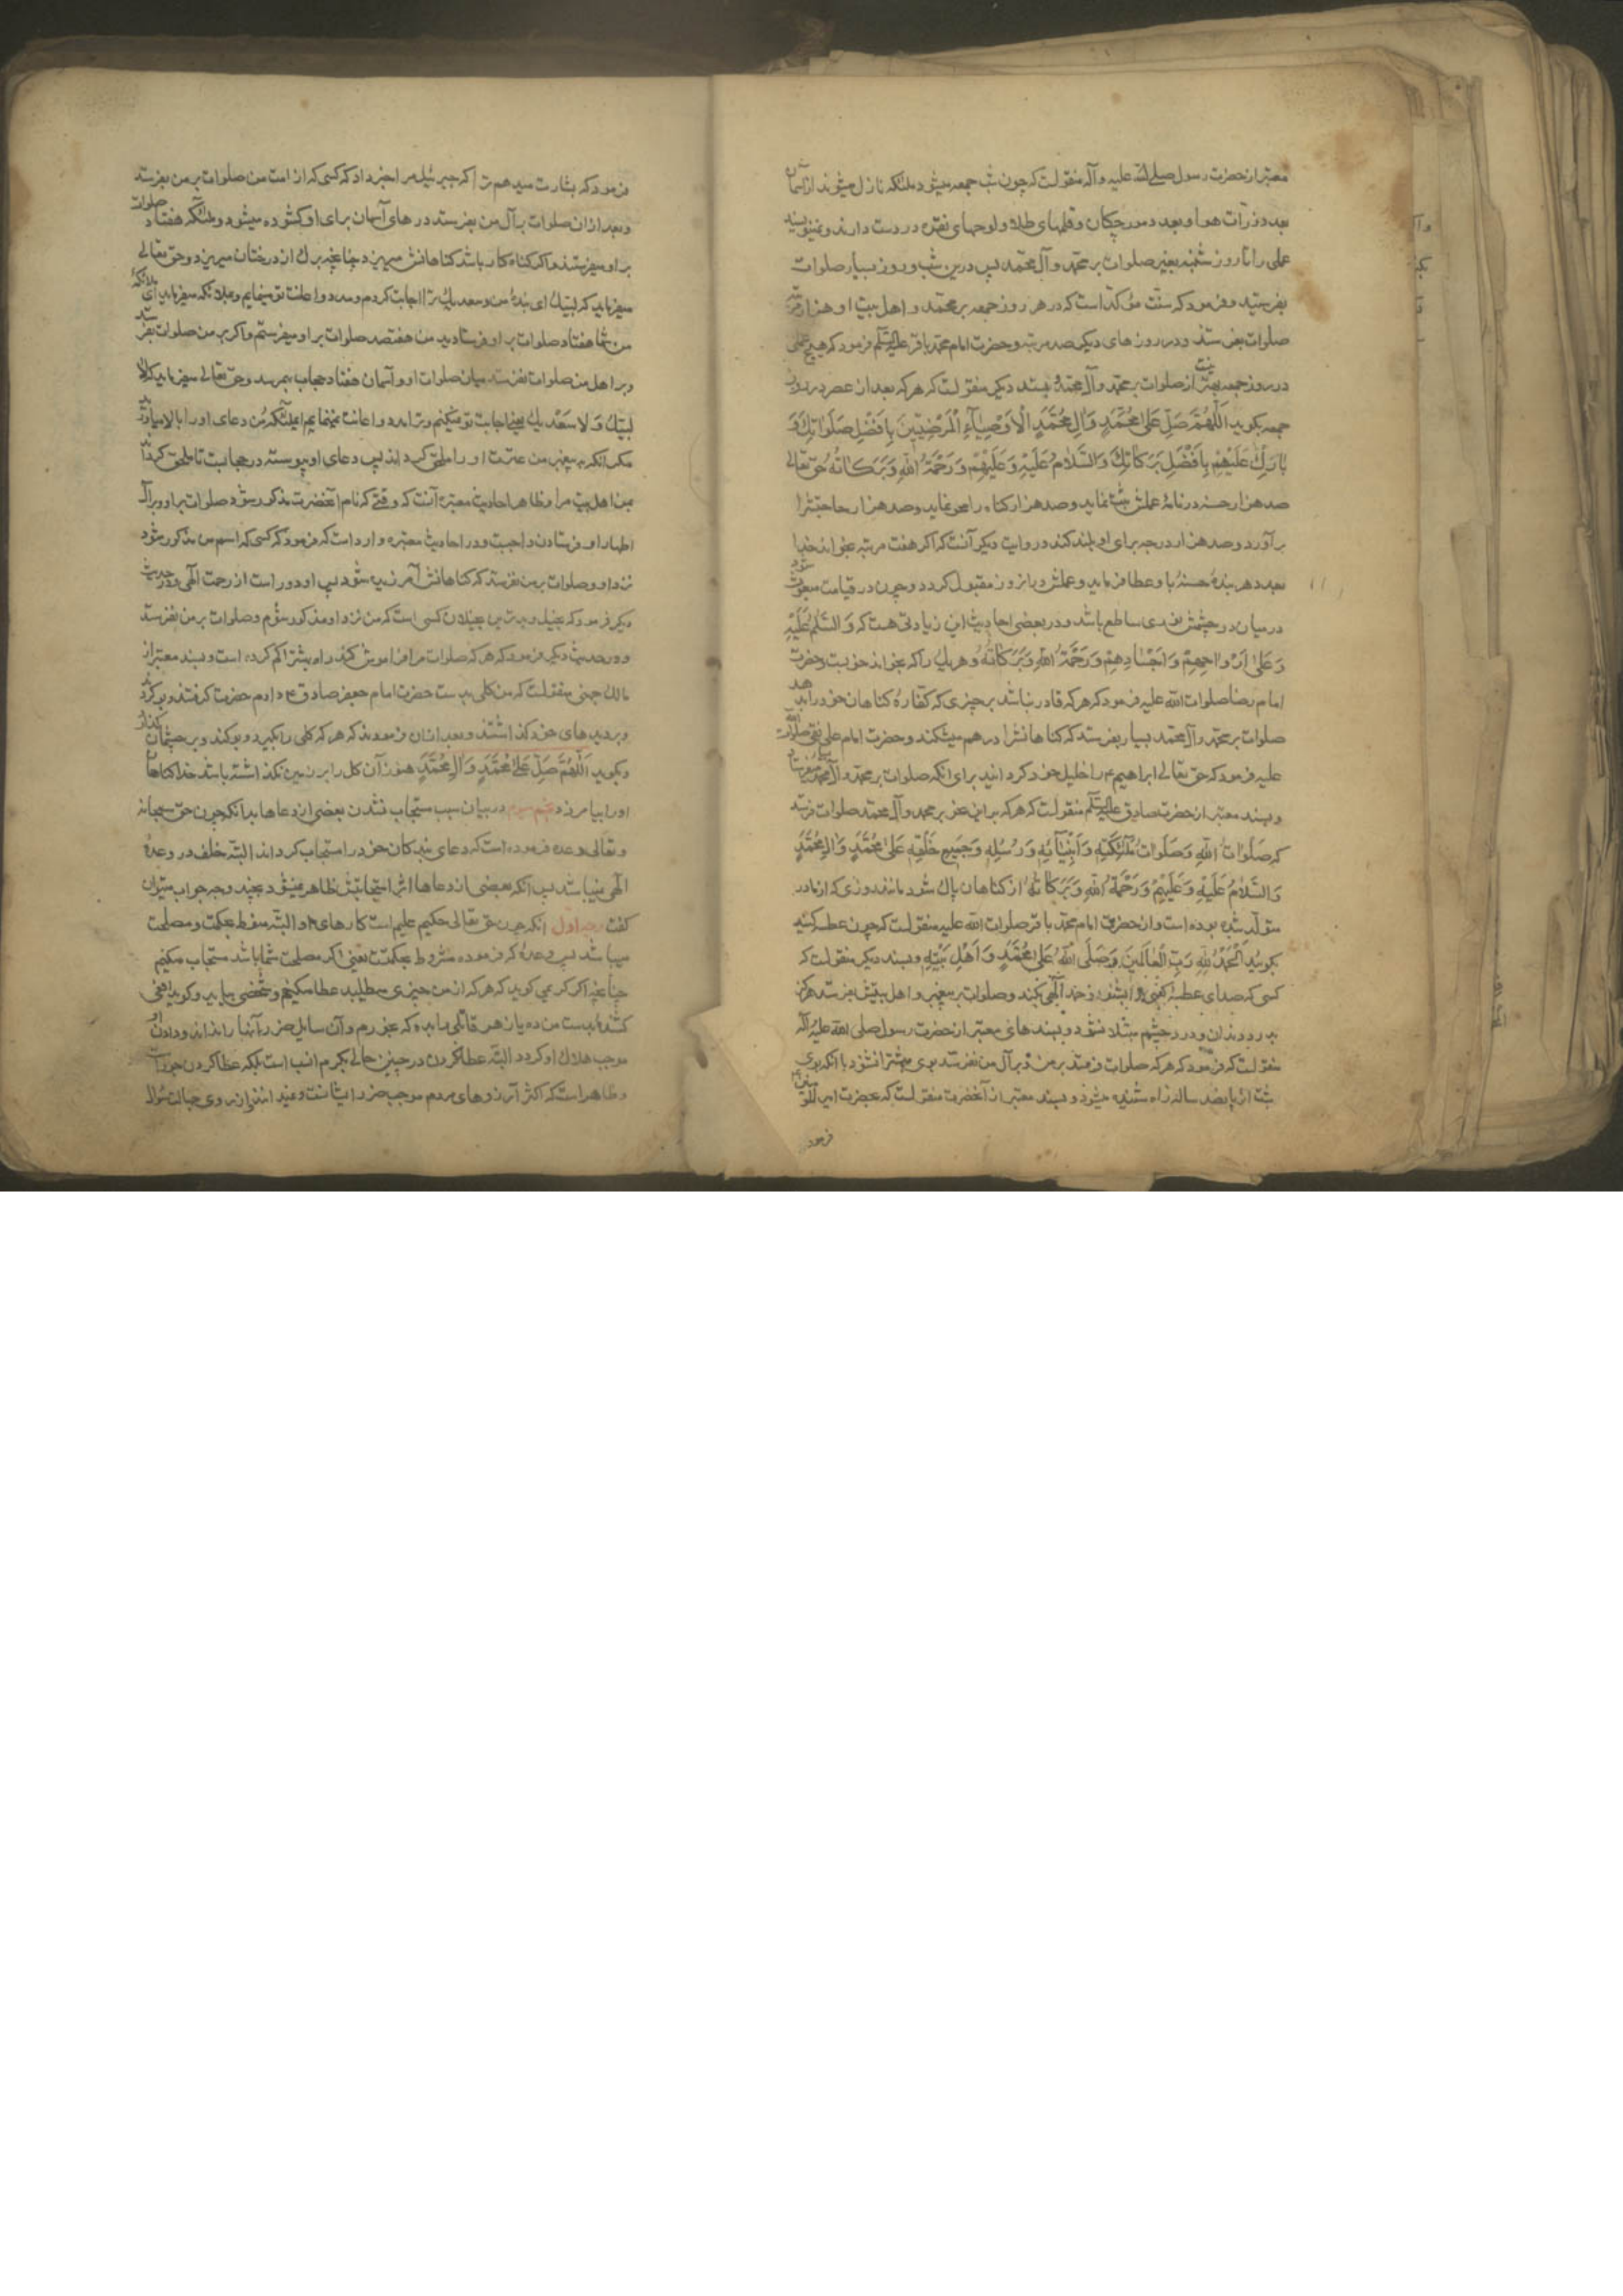 معتبر از حضرت رسول صلی الله علیه و آله منقولست که چون شب جمعه میشود ملئکه نازل میشوند از آسمان
بعدد ذرات هوا و بعدد مورچگان و قلمهای طلا و لوحهای نقره در دست دارند و نمینویسند
عملی را تا روز شنبه بغیر صلوات بر محمد و آل محمد پس درین شب و روز بسیار صلوات
بفرستید و فرمود که سنت مؤکد است که در هر روز جمعه بر محمد و اهل بیت او هزار مرتبه
صلوات بفرستند و در روزهای دیگر صد مرتبه و حضرت امام محمد باقر علیه السلم فرمود که هیچ عملی
در روز جمعه بهتر از صلوات بر محمد و آل محمد نیست و بسند دیگر منقولست که هر که بعد از عصر در روز
جمعه بگوید اَللّهُمَّ صَلِّ عَلی مُحَمَّدٍ وَ الِ مُحَمَّدٍ الْاَوْصِیآءِ الْمَرْضِیّینَ بِاَفْضَلِ صَلَواتِكَ وَ
بارِكْ عَلَیْهِمْ بِاَفْضَلِ بَرَكاتِكَ وَ السَّلامُ عَلَیْهِ وَ عَلَیْهِمْ وَ رَحْمَةُ اللهِ وَ بَرَكاتُهُ حق تعالی
صد هزار حسنه در نامهٔ عملش ثبت نماید و صد هزار گناه را محو نماید و صد هزار حاجتش را
برآورد و صد هزار درجه برای او بلند کند در وایت دیگر آنست که اگر هفت مرتبه بخواند خدا
بعدد هر بندهٔ حسنهٔ باو عطا فرماید و عملش در انروز مقبول گردد و چون در قیامت مبعوث شود
در میان دو چشمش نوری ساطع باشد و در بعضی احادیث این زیادتی هست که وَ السَّلمُ عَلَیْهِ
وَ عَلی اَرْواحِهِمْ وَ اَجْسادِهِمْ وَ رَحْمَةُ اللهِ وَ بَرَكاتُهُ و هر یك را که بخواند خوبست و حضرت
امام رضا صلوات الله علیه فرمود که هر که قادر نباشد بر چیزی که کفاره کناهان خود را بدهد
صلوات بر محمد و آل محمد بسیار بفرستد که کناهانش را در هم میشکند و حضرت امام علی نقی صلوات الله
علیه فرمود که حق تعالی ابراهیم ع را خلیل خود کردانید برای انکه صلوات بر محمد و آل محمد بسیار میفرستاد
و بسند معتبر از حضرت صادق علیه السلم منقولست که هر که براین نحو بر محمد و آل محمد صلوات فرستد
که صَلَواتُ اللهِ وَ صَلَواتُ مَلآئِكَتِهِ وَ اَنْبِیآئِهِ وَ رُسُلِهِ وَ جَمیعِ خَلْقِهِ عَلی مُحَمَّدٍ وَ الِ مُحَمَّدٍ
وَ السَّلامُ عَلَیْهِ وَ عَلَیْهِمْ وَ رَحْمَةُ اللهِ وَ بَرَكاتُهُ از کناهان پاك شود مانند روزی که از مادر
متولد شده بوده است و از حضرت امام محمد باقر صلوات الله علیه منقولست که چون عطسه کنید
بگوئید اَلْحَمْدُ لِلهِ رَبِّ الْعالَمینَ وَ صَلَّی اللهُ عَلی مُحَمَّدٍ وَ اَهْلِ بَیْتِهِ و بسند دیگر منقولست که
کسی که صدای عطسهٔ کسی را بشنود و حمد الهی بکند و صلوات بر پیغمبر و اهل بیتش بفرستد هرکز
بدرد دندان و درد چشم مبتلا نشود و بسندهای معتبر از حضرت رسول صلی الله علیه و آله
منقولست که فرمود که هر که صلوات فرستد بر من و بر آل من نفرستد بوی بهشت را نشنود با آنکه بوی
بهشت از پانصد ساله راه شنیده میشود و بسند معتبر از آنحضرت منقولست که بحضرت امیر المؤمنین
فرمود
فرمود که بشارت میدهم ترا که جبرئیل مرا خبر داد که کسی که از امت من صلوات بر من بفرستد
و بعد ازان صلوات بر آل من بفرستد درهای آسمان برای او کشوده میشود و ملئکه هفتاد صلوات
بر او میفرستند و اگر گناه کار باشد کناهانش میریزد چنانچه برك از درختان میریزد و حق تعالی
میفرماید که لبیك ای بندهٔ من و سعدیك ترا اجابت کردم و مدد و اعانت تو مینمایم و بملائکه میفرماید ای ملائکه
من شما هفتاد صلوات بر او فرستادید من هفتصد صلوات بر او میفرستم و اگر بر من صلوات بفرستد
و بر اهل من صلوات نفرستد میان صلوات او و آسمان هفتاد حجاب بهم رسد و حق تعالی میفرماید که لا
لبیك وَ لا سَعْدیك یعنی اجابت تو نمیکنم و ترا مدد و اعانت نمینمایم ای ملئکه من دعای او را بالا میاورید
مکر انکه به پیغمبر من عترت او را ملحق گرداند پس دعای او پیوسته در حجابست تا ملحق گرداند
بمن اهل بیت مرا و ظاهر احادیث معتبره آنست که وقتی که نام آنحضرت مذکور شود صلوات بر او و بر آل
اطهار او فرستادن واجبست و در احادیث معتبره وارد است که فرمود که کسی که اسم من مذکور شود
نزد او و صلوات بر من نفرستد که کناهانش آمرزیده شود پس او دور است از رحمت الهی و در حدیث
دیگر فرمود که بخیل و بدترین بخیلان کسی است که من نزد او مذکور شوم و صلوات بر من نفرستد
و در حدیث دیگر فرمود که هر که صلوات مرا فراموش کند راه بهشت را گم کرده است و بسند معتبر از
مالك جهنی منقولست که من کلی بدست حضرت امام جعفر صادق ع دادم حضرت گرفتند و بو کردند
و بر دیدهای خود گذاشتند و بعد ازان فرمودند که هر که کلی را بگیرد و بو کند و بر چشمان گذارد
و بگوید اَللّهُمَّ صَلِّ عَلی مُحَمَّدٍ وَ الِ مُحَمَّدٍ هنوز آن کل را بر زمین نگذاشته باشد خدا کناهان
او را بیامرزد و نجم سوم در بیان سبب مستجاب نشدن بعضی از دعاها بدانکه چون حق سبحانه
و تعالی وعده فرموده است که دعای بندکان خود را مستجاب کرداند البته خلف در وعدهٔ
الهی نمیباشد پس آنکه بعضی از دعاها اثر استجابتش ظاهر نمیشود بچند وجه جواب میتوان
گفت وجه اول آنکه چون حق تعالی حکیم علیم است کارهای او البته منوط بحکمت و مصلحت
میباشد پس وعدهٔ که فرموده مشروط بحکمتست یعنی اکر مصلحت شما باشد مستجاب میکنم
چنانچه اکر کریمی کوید که هر که از من چیزی میطلبد عطا میکنم و شخصی بیاید و کوید افعی
کشنده بدست من ده یا زهر قاتلی را بده که بخورم و آن سایل ضرر آنها را نداند و دادن او
موجب هلاك او گردد البته عطا نکردن در چنین حالی بکرم انسب است بلکه عطا کردن جور است
و ظاهر است که اکثر آرزوهای مردم موجب ضرر ایشانست و نمیدانند و از روی جهالت سؤال